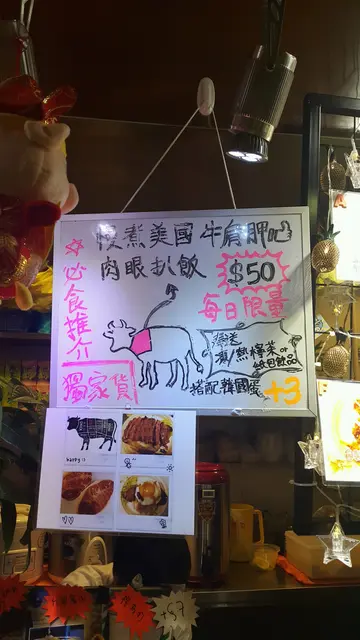 慢煮美國牛肩胛吧
肉眼扒飯
$50
每日限量
☆必食推介
獨家貨
搭配韓國蛋 +3
凍/熱檸茶or
紙包飲品
happy :)